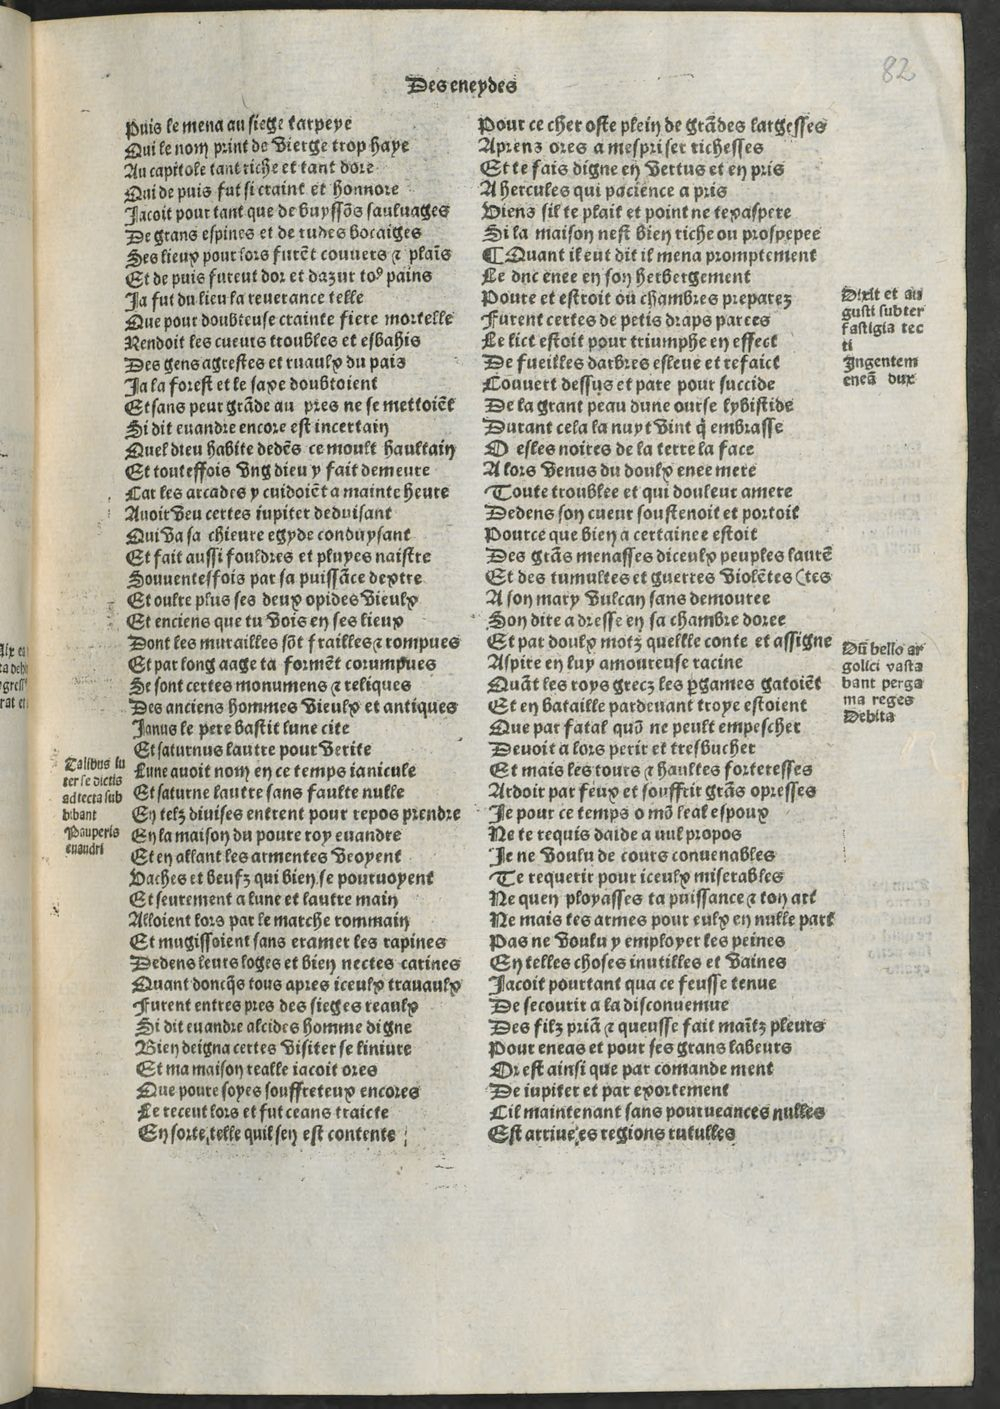 82
Des eneydes
Puis le mena au siege tarpeye
Qui le nom print de vierge trop haye
Au capitole tant riche et tant dore
Qui de puis fut si craint et honnore
Jacoit pour tant que de buyssõs sauluages
De grans espines et de rudes bocaiges
Ses lieux pour lors furẽt couuers ⁊ plaĩs
Et de puis furent dor et dazur to⁹ pains
Ja fut du lieu la reuerance telle
Que pour doubteuse crainte fiere mortelle
Rendoit les cueurs troubles et esbahis
Des gens agrestes et ruaulx du pais
Ja la forest et le saxe doubtoient
Et sans peur grãde au pres ne se mettoiẽt
Si dit euandre encore est incertain
Quel dieu habite dedẽs ce moult haultain
Et touteffois vng dieu y fait demeure
Car les arcades y cuidoiẽt a mainte heure
Auoir veu certes iupiter deduisant
Qui va sa chieure egyde conduysant
Et fait aussi fouldres et pluyes naistre
Souuentesfois par sa puissãce dextre
Et oultre plus ses deux opides vieulx
Et enciens que tu vois en ses lieux
Dont les murailles sõt frailles ⁊ rompues
Et par long aage ta formẽt corumpues
Se sont certes monumens ⁊ reliques
Des anciens hommes vieulx et antiques
Janus le pere bastit lune cite
Et saturnus lautre pour verite
Lune auoit nom en ce temps ianicule
Et saturne lautre sans faulte nulle
En telz diuises entrent pour repos prendre
En la maison du poure roy euandre
Et en allant les armentes veoyent
Vaches et beufz qui bien se pouruoyent
Et seurement a lune et lautre main
Alloient lors par le marche rommain
Et mugissoient sans eramer les rapines
Dedens leurs loges et bien nectes carines
Quant doncq̃s tous apres iceulx trauaulx
Furent entres pres des sieges reaulx
Si dit euandre alcides homme digne
Bien deigna certes visiter se liniure
Et ma maison realle iacoit ores
Que poure soyes souffreteux encores
Le receut lors et fut ceans traicte
En sorte telle quil sen est contente
Talibus in
ter se dictis
ad tecta sub
bibant
Pauperis
euandri
Pour ce cher oste plein de grãdes largesses
Aprenz ores a mespriser richesses
Et te fais digne en vertus et en pris
A hercules qui pacience a pris
Viens sil te plait et point ne texaspere
Si la maison nest bien riche ou prospere
¶ Quant il eut dit il mena promptement
Le duc enee en son herbergement
Poure et estroit ou chambres preparez
Furent certes de petis draps parees
Le lict estoit pour triumphe en effect
De fueilles darbres esleue et refaict
Couuert dessus et pare pour succide
De la grant peau dune ourse lybistide
Durant cela la nuyt vint q̃ embrasse
O esles noires de la terre la face
A lors venus du doulx enee mere
Toute troublee et qui douleur amere
Dedens son cueur soustenoit et portoit
Pource que bien a certainee estoit
Des grãs menasses diceulx peuples laurẽ
Et des tumultes et guerres violẽtes (tes
A son mary vulcan sans demouree
Son dire a dresse en sa chambre doree
Et par doulx motz quellle conte et assigne
Aspire en luy amoureuse racine
Quãt les roys grecz les p̱games gatoiẽt
Et en bataille pardeuant troye estoient
Que par fatal quõ ne peult empescher
Deuoit a lors perir et tresbucher
Et mais les tours ⁊ haultes forteresses
Ardoir par feux et souffrir grãs opresses
Je pour ce temps o mõ leal espoux
Ne te requis daide a nul propos
Je ne voulu de cours conuenables
Te requerir pour iceulx miserables
Ne quen ployasses ta puissance ⁊ ton art
Ne mais tes armes pour eulx en nulle part
Pas ne voulu y employer les peines
En telles choses inutilles et vaines
Jacoit pourtant qua ce feusse tenue
De secourir a la disconuenue
Des filz priã ⁊ queusse fait maĩtz pleurs
Pour eneas et pour ses grans labeurs
Or est ainsi que par comande ment
De iupiter et par exortement
Cil maintenant sans pourueances nulles
Est arriue es regions rutulles
Dixit et an
gusti subter
fastigia tec
ti
Ingentem
eneã dux
Dũ bello ar
golici vasta
bant perga
ma reges
Debita